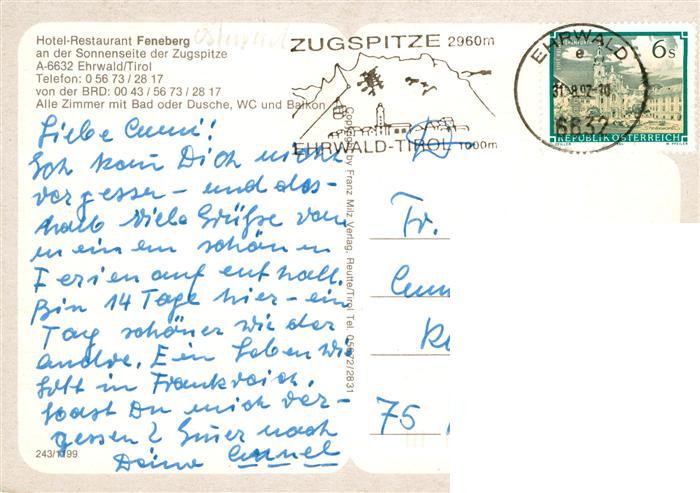 Hotel-Restaurant Feneberg
an der Sonnenseite der Zugspitze
A-6632 Ehrwald/Tirol
Telefon: 0 56 73 / 28 17
von der BRD: 00 43 / 56 73 / 28 17
Alle Zimmer mit Bad oder Dusche, WC und Balkon
ZUGSPITZE 2960m
EHRWALD-TIROL 1000m
EHRWALD
e
6632
6s
REPUBLIK ÖSTERREICH
Liebe
Ich kann Dich nicht
vergessen – und des-
halb viele Grüße von
meinem schönen
Ferienaufenthalt.
Bin 14 Tage hier – ein
Tag schöner wie der
andre. Ein Leben wie
Gott in Frankreich.
Hast Du mich ver-
gessen? Immer noch
Deine
Copyright by Franz Milz Verlag, Reutte/Tirol Tel. 05672/2831
Fr.
75
243/1199